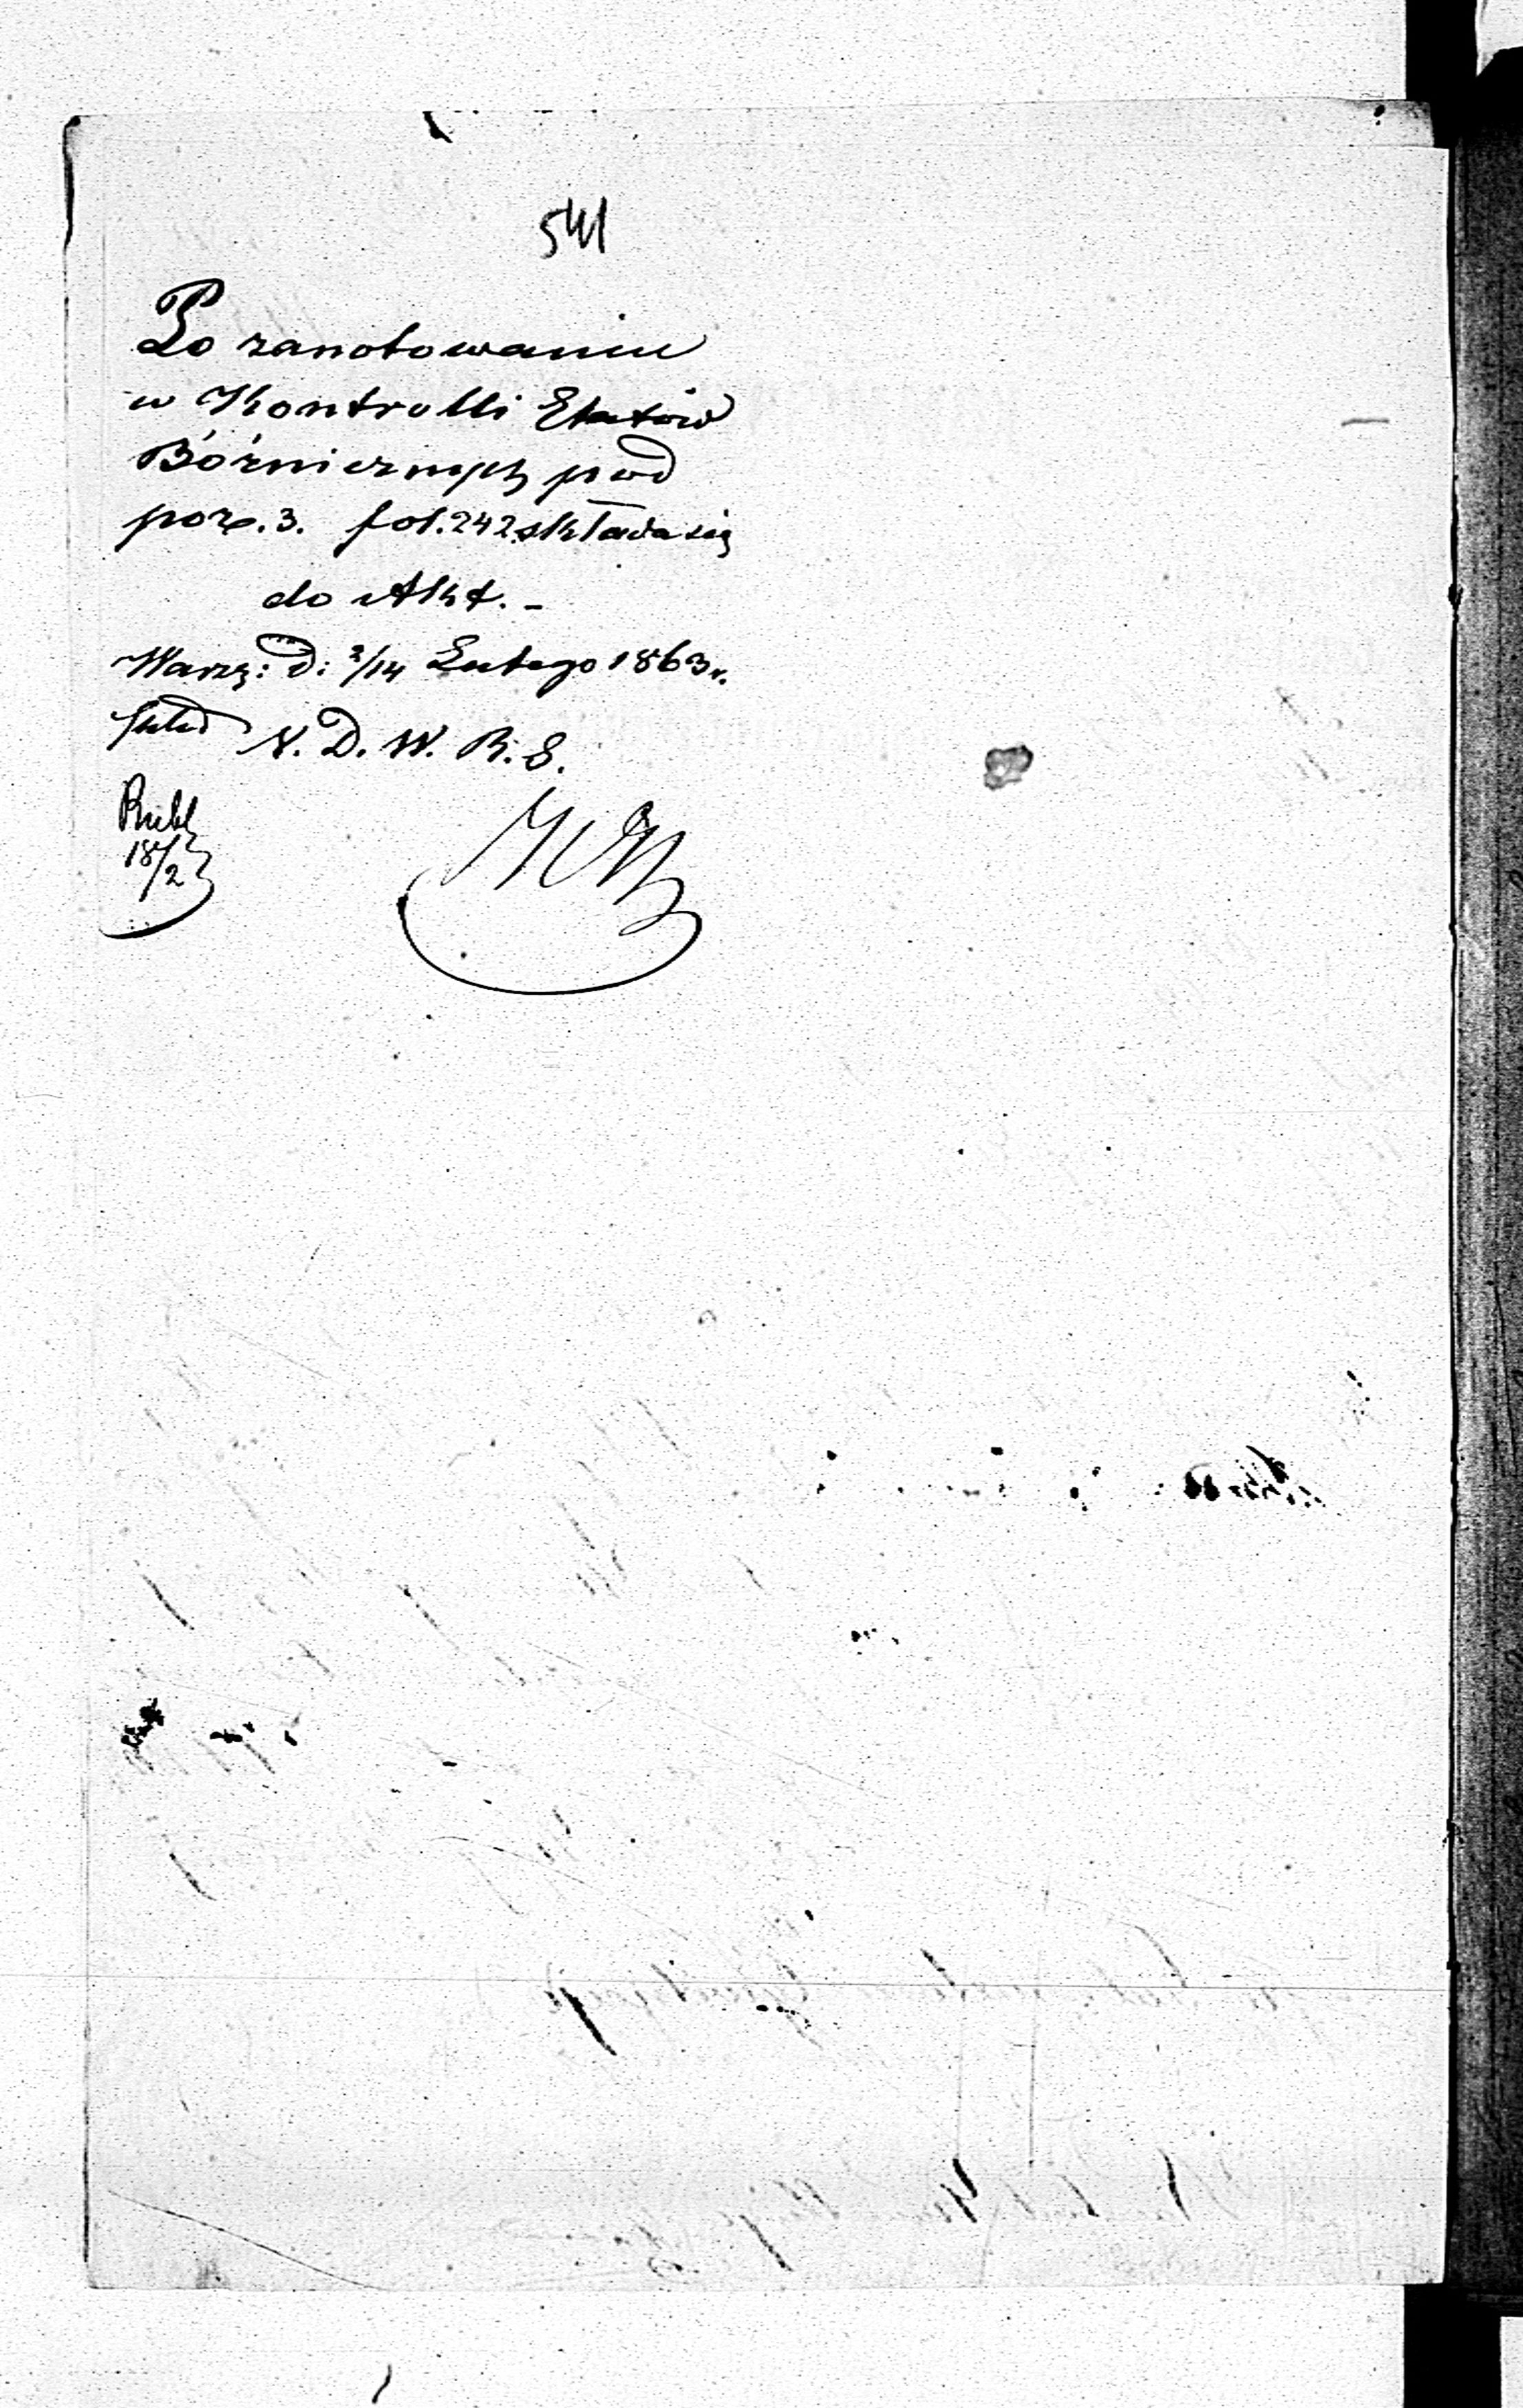 541
Po zanotowaniu
w Kontrolli Etatów
Bóżnicznych pod
poz. 3. fol. 242 składa się
do Akt. -
Warsz: d: 2/14 Lutego 1863 r.
N. D. W. R. S.
18/2